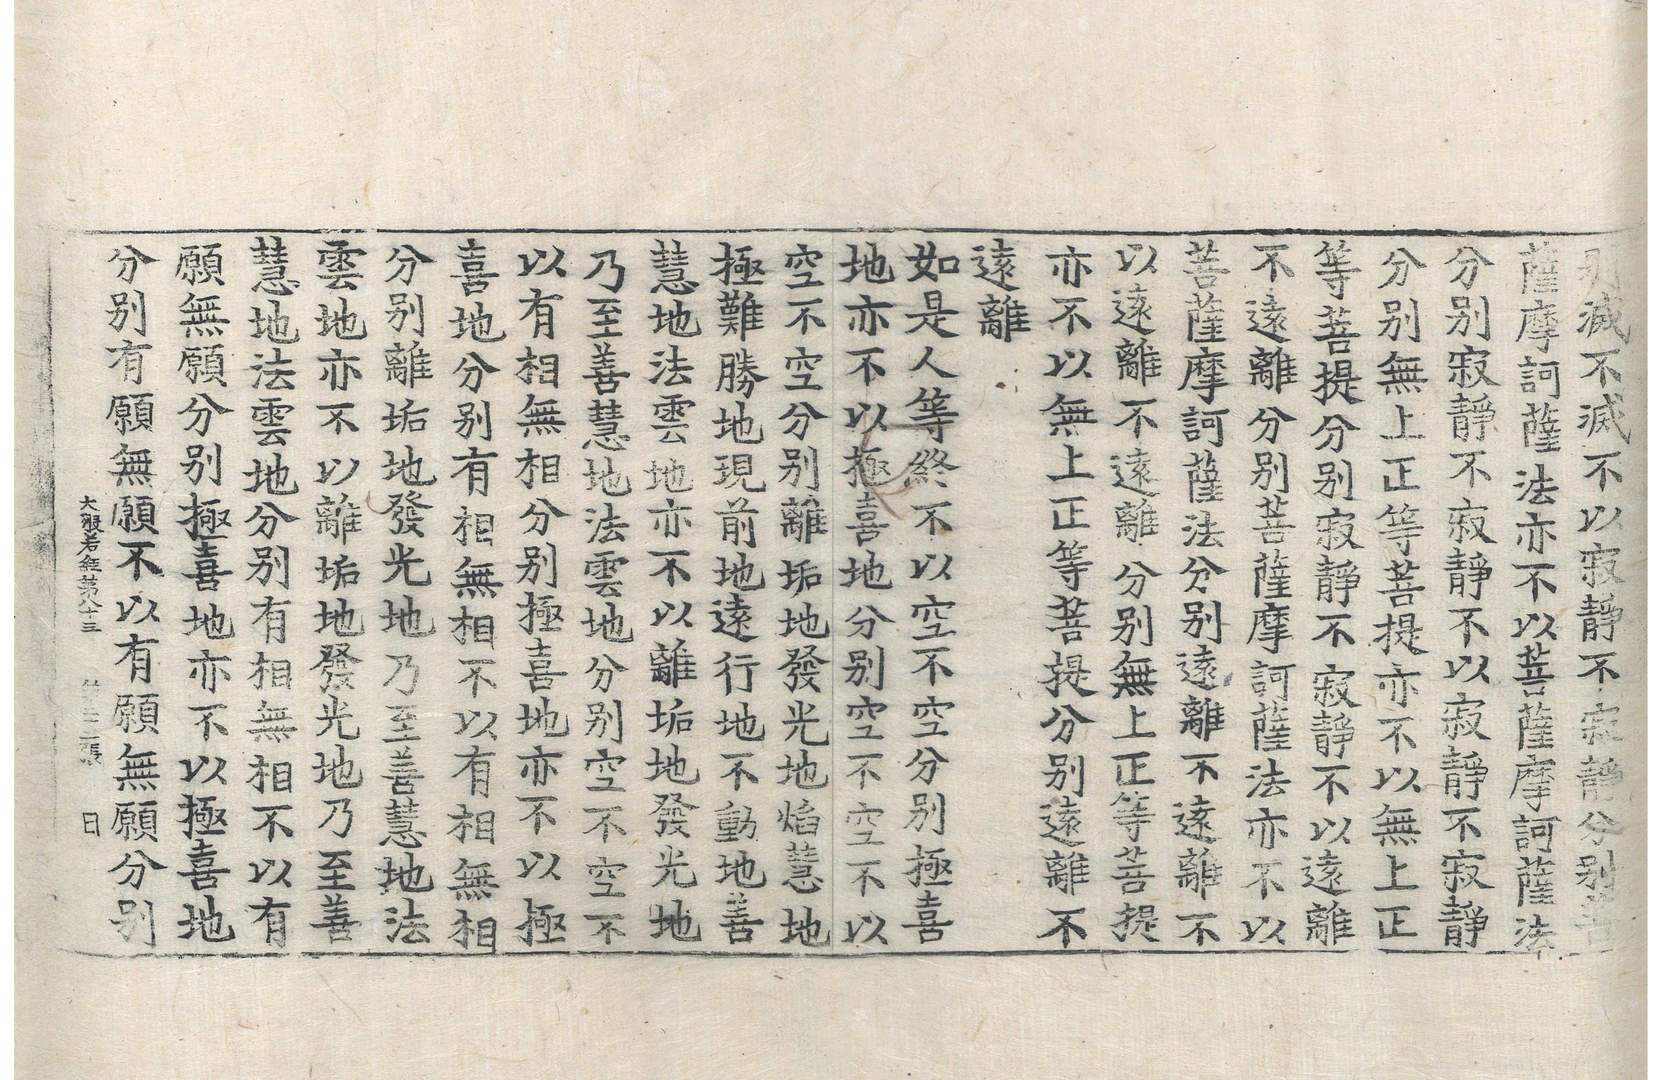 別滅不滅不以寂靜不寂靜分別菩
薩摩訶薩法亦不以菩薩摩訶薩法
分別寂靜不寂靜不以寂靜不寂靜
分別無上正等菩提亦不以無上正
等菩提分別寂靜不寂靜不以遠離
不遠離分別菩薩摩訶薩法亦不以
菩薩摩訶薩法分別遠離不遠離不
以遠離不遠離分別無上正等菩提
亦不以無上正等菩提分別遠離不
遠離
如是人等終不以空不空分別極喜
地亦不以極喜地分別空不空不以
空不空分別離垢地發光地焰慧地
極難勝地現前地遠行地不動地善
慧地法雲地亦不以離垢地發光地
乃至善慧地法雲地分別空不空不
以有相無相分別極喜地亦不以極
喜地分別有相無相不以有相無相
分別離垢地發光地乃至善慧地法
雲地亦不以離垢地發光地乃至善
慧地法雲地分別有相無相不以有
願無願分別極喜地亦不以極喜地
分別有願無願不以有願無願分別
大般若経第八十三 張 日